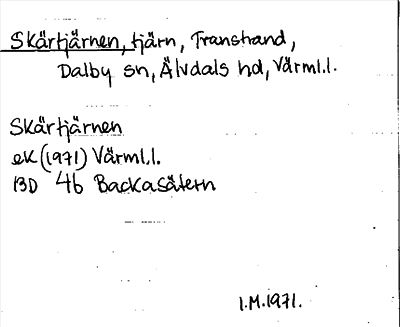 Skärtjärnen, tjärn, Transtrand,
Dalby sn, Älvdals hd, Värml.l.
Skärtjärnen
ek (1971) Värml.l.
13D 4b Backasätern
I.M.1971.